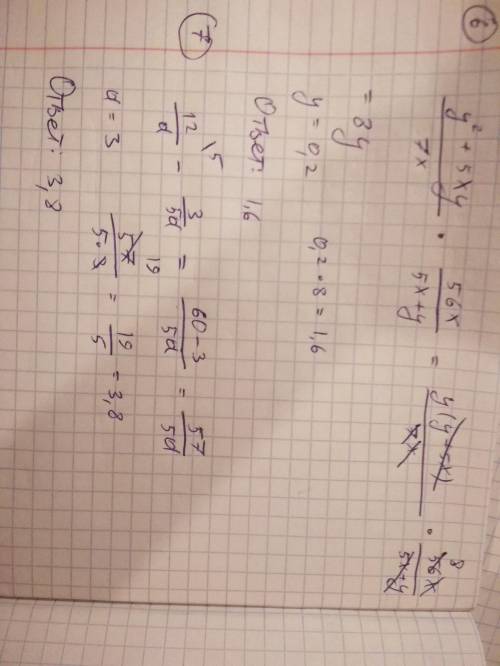 6
(y² + 5xy)/(7x) · (56x)/(5x+y) = (y(y+5x))/(7x) · (56x 8)/(5x+y)
= 8y
y = 0,2 0,2 · 8 = 1,6
Ответ: 1,6
7
12/a \5 − 3/(5a) = (60−3)/(5a) = 57/(5a)
a = 3 (57 19)/(5·3) = 19/5 = 3,8
Ответ: 3,8